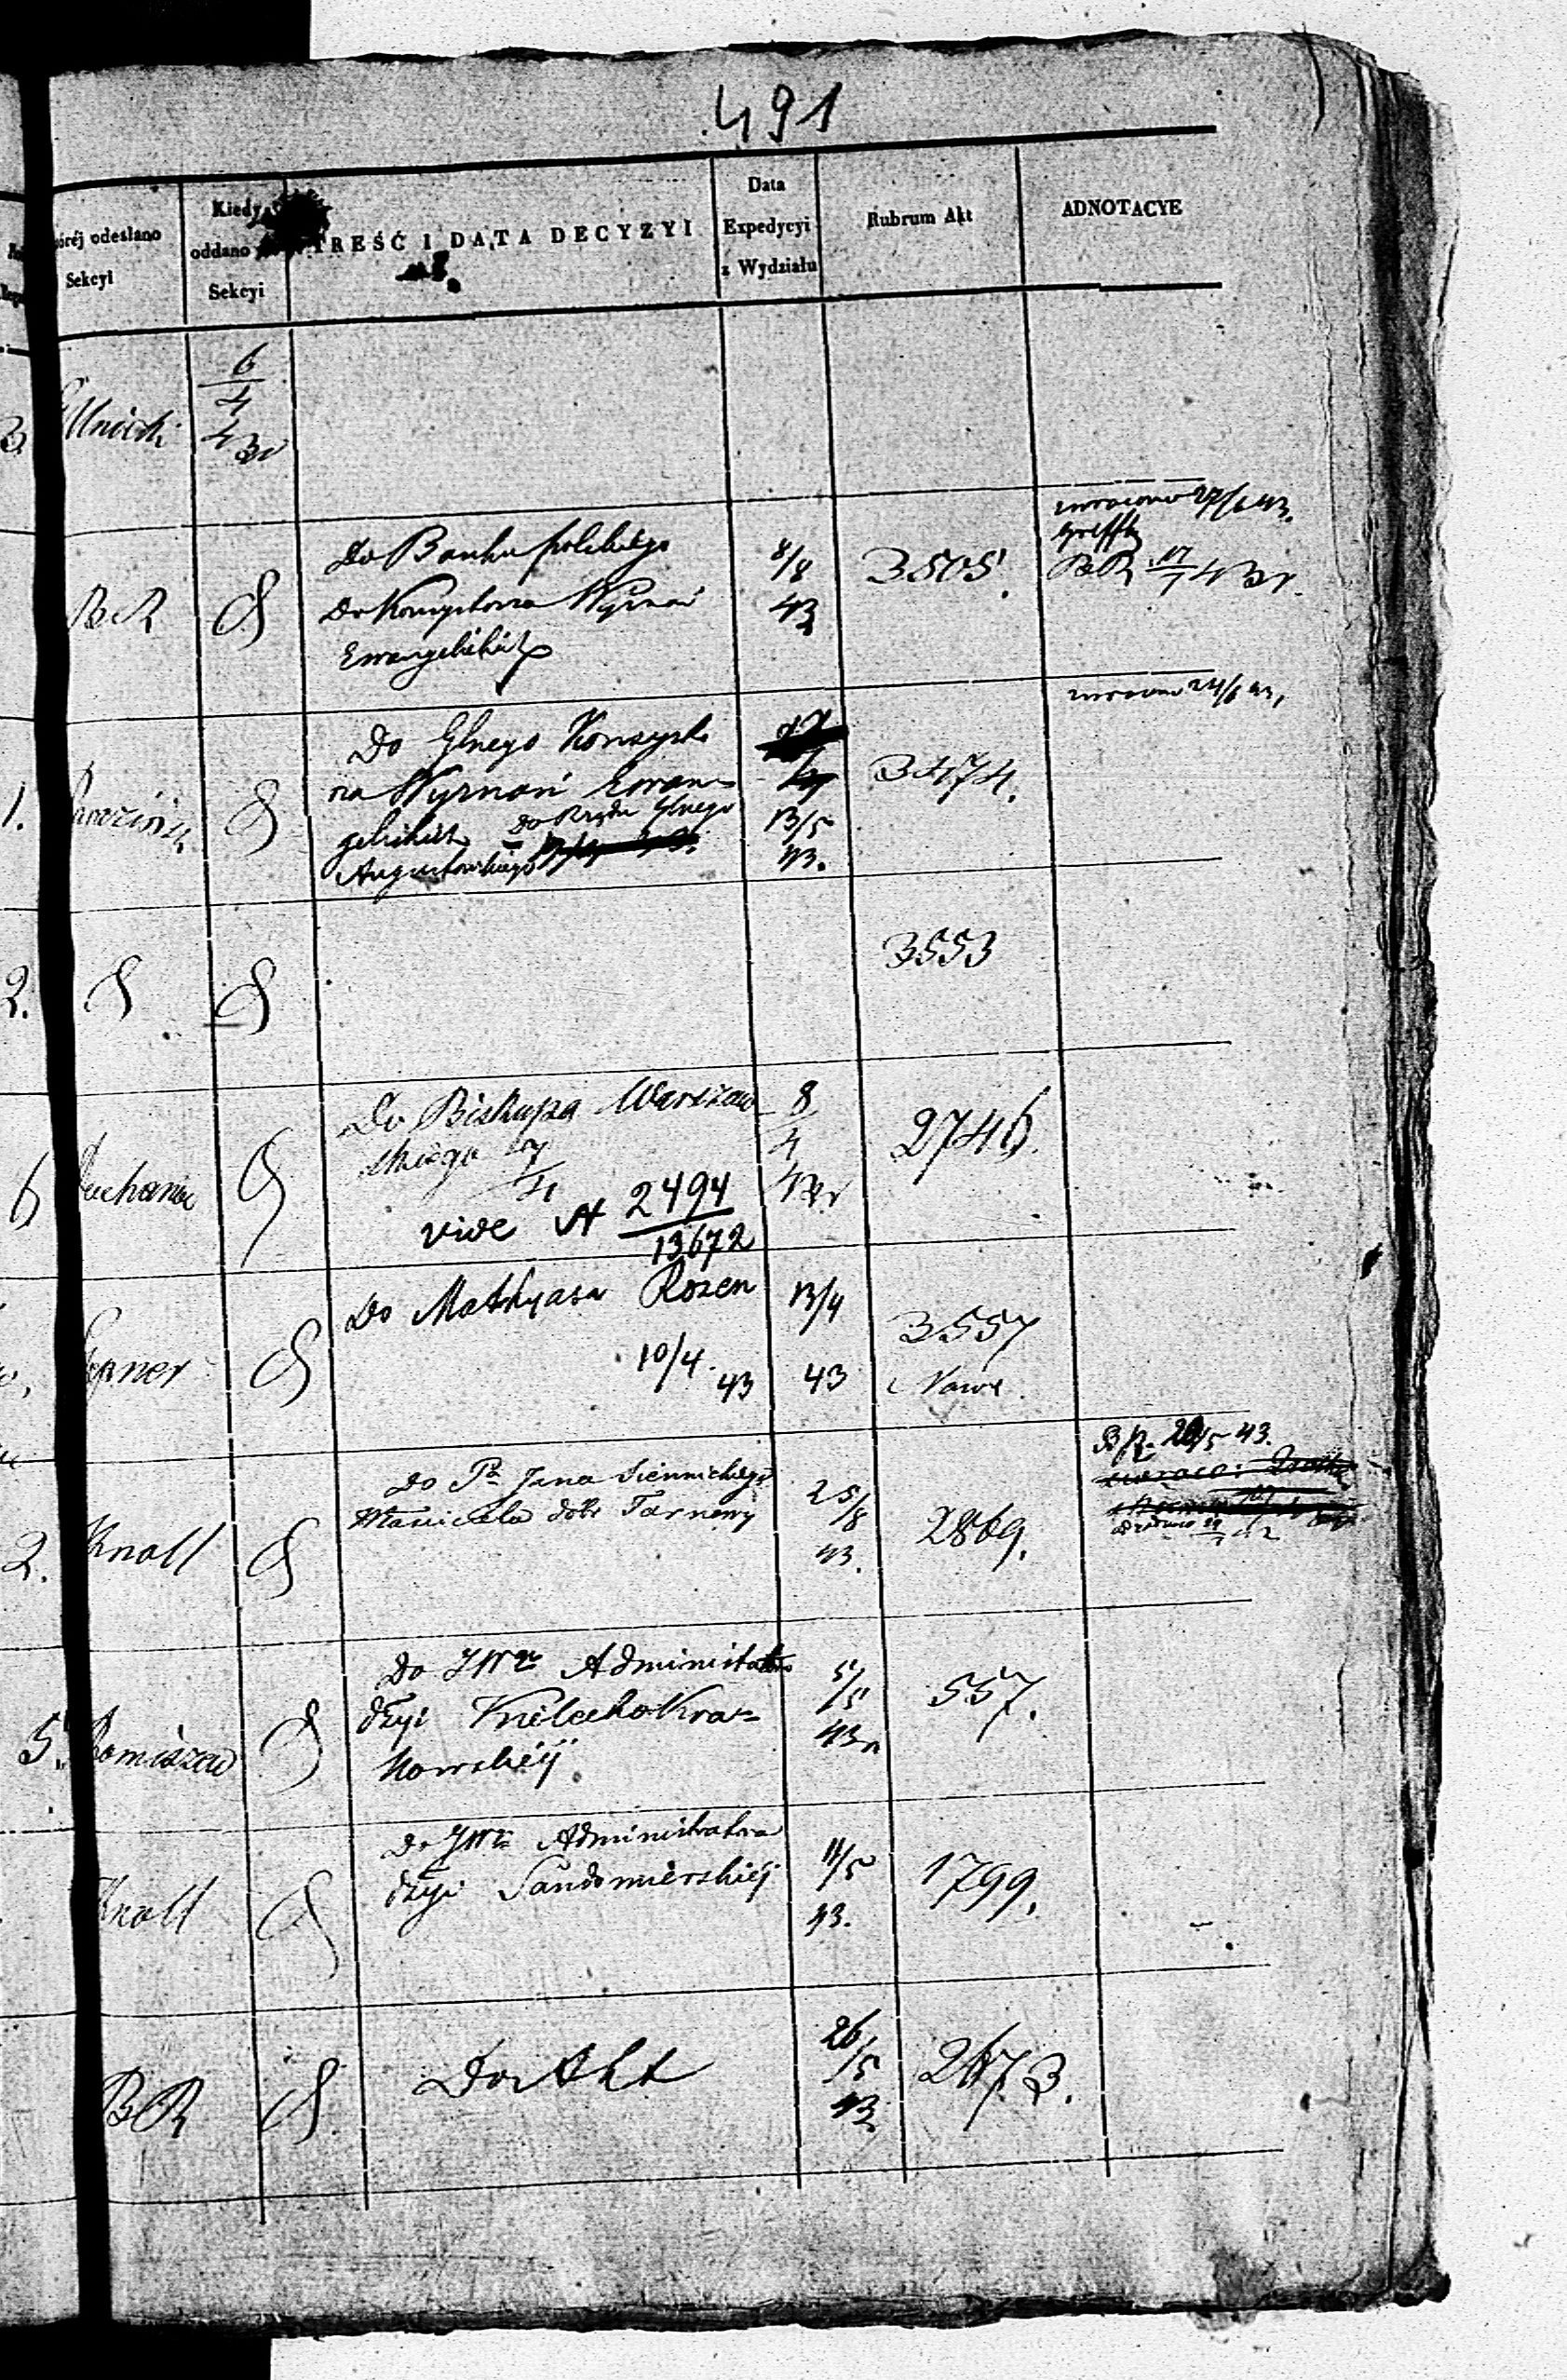 491
któréj odesłano
Sekcyi
Kiedy
oddano
Sekcyi
TREŚĆ I DATA DECYZYI
Data
Expedycyi
z Wydziału
Rubrum Akt
ADNOTACYE
3
6/4
43r
BR
Do Banku polskiego
Do Konsystorza Wyznań
Ewangelickich
8/8
43
3505.
zwrócono 27/6 43.
BR 17/7 43r.
1.
Do Głnego Konsysto
rza Wyznań Ewan=
gelickich Do Rządu Głnego
Augustowskiego
13/5
43.
3474.
zwrócono 24/6 43,
2.
3553
6
Do Biskupa Warszaw
skiego 7/4
vide A 2494/13672
8/4
43r
2746.
Do Mathyasa Rozen
10/4 43
13/4
43
3557
Nowe.
2.
Knoll
Do Pa Jana Siennickiego
Właściciela dóbr Tarnowy
25/8
43.
2869.
BR. 20/5 43.
5.
Do JWo Administratora
dzyi Kielecko Kra=
kowskiéj
5/5
43r
557.
Knoll
Do JWo Administratora
dzyi Sandomierskiéj
11/5
43.
1799.
BR
Do Akt
26/5
43
2673.